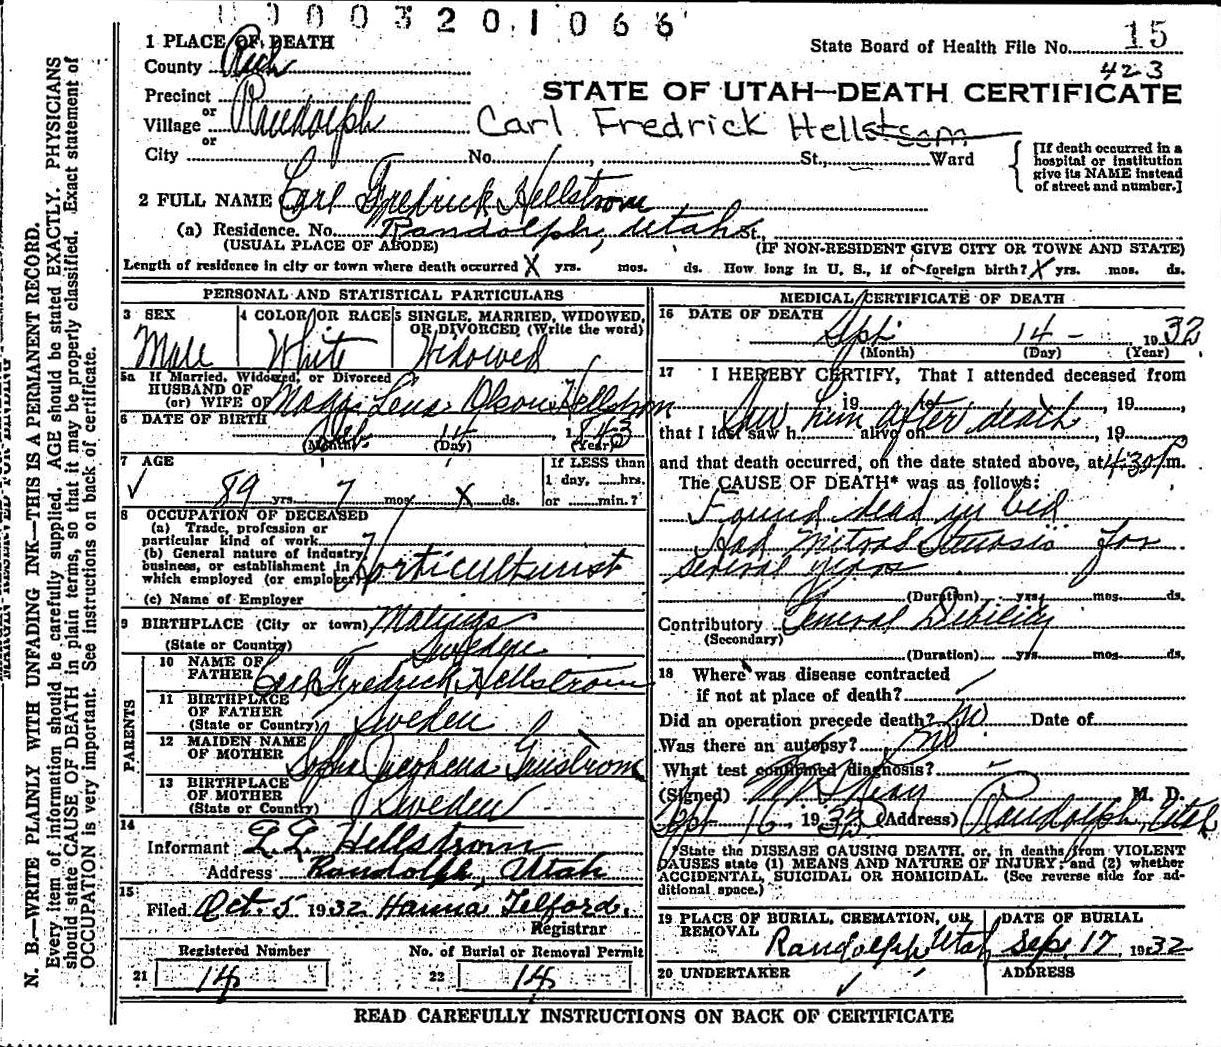 0 0 0 3 2 0 1 0 6 6
15
State Board of Health File No.
423
1 PLACE OF DEATH
County Rich
STATE OF UTAH—DEATH CERTIFICATE
Precinct
or
Village Randolph
or
Carl Fredrick Hellstrom
City No. , St., Ward
[If death occurred in a
hospital or institution
give its NAME instead
of street and number.]
2 FULL NAME Carl Fredrick Hellstrom
(a) Residence. No. Randolph, Utah St.,
(USUAL PLACE OF ABODE) (IF NON-RESIDENT GIVE CITY OR TOWN AND STATE)
Length of residence in city or town where death occurred X yrs. mos. ds. How long in U. S., if of foreign birth? X yrs. mos. ds.
PERSONAL AND STATISTICAL PARTICULARS
3 SEX
Male
4 COLOR OR RACE
White
5 SINGLE, MARRIED, WIDOWED,
OR DIVORCED (Write the word)
Widowed
5a If Married, Widowed, or Divorced
HUSBAND OF
(or) WIFE OF Lena Olson Hellstrom
6 DATE OF BIRTH
14, 1843
(Month) (Day) (Year)
7 AGE
89 yrs. 7 mos. X ds.
If LESS than
1 day, hrs.
or min.?
8 OCCUPATION OF DECEASED
(a) Trade, profession or
particular kind of work
(b) General nature of Industry,
business, or establishment in
which employed (or employer) Horticulturist
(c) Name of Employer
9 BIRTHPLACE (City or town)
(State or Country) Sweden
PARENTS
10 NAME OF
FATHER Carl Fredrick Hellstrom
11 BIRTHPLACE
OF FATHER
(State or Country) Sweden
12 MAIDEN NAME
OF MOTHER Sofia
13 BIRTHPLACE
OF MOTHER
(State or Country) Sweden
14
Informant Hellstrom
Address Randolph, Utah
15
Filed Oct. 5 1932 Hanna Telford,
Registrar
Registered Number No. of Burial or Removal Permit
21 14 22 14
MEDICAL CERTIFICATE OF DEATH
16 DATE OF DEATH
Sept 14 - 1932
(Month) (Day) (Year)
17 I HEREBY CERTIFY, That I attended deceased from
, 19 to , 19
Saw him after death
that I last saw h alive on , 19
and that death occurred, on the date stated above, at 4:30 P m.
The CAUSE OF DEATH* was as follows:
Found dead in bed
Had Mitral Stenosis for
several years
(Duration) yrs. mos. ds.
Contributory General Debility
(Secondary)
(Duration) yrs. mos. ds.
18 Where was disease contracted
if not at place of death?
Did an operation precede death? No Date of
Was there an autopsy? no
What test confirmed diagnosis? -
(Signed) M. D.
Sept 16, 1932 (Address) Randolph, Utah
*State the DISEASE CAUSING DEATH, or, in deaths from VIOLENT
CAUSES state (1) MEANS AND NATURE OF INJURY; and (2) whether
ACCIDENTAL, SUICIDAL OR HOMICIDAL. (See reverse side for ad-
ditional space.)
19 PLACE OF BURIAL, CREMATION, OR
REMOVAL
Randolph Utah
DATE OF BURIAL
Sep. 17 1932
20 UNDERTAKER ADDRESS
READ CAREFULLY INSTRUCTIONS ON BACK OF CERTIFICATE
N. B.—WRITE PLAINLY WITH UNFADING INK—THIS IS A PERMANENT RECORD.
Every item of information should be carefully supplied. AGE should be stated EXACTLY. PHYSICIANS
should state CAUSE OF DEATH in plain terms, so that it may be properly classified. Exact statement of
OCCUPATION is very important. See instructions on back of certificate.